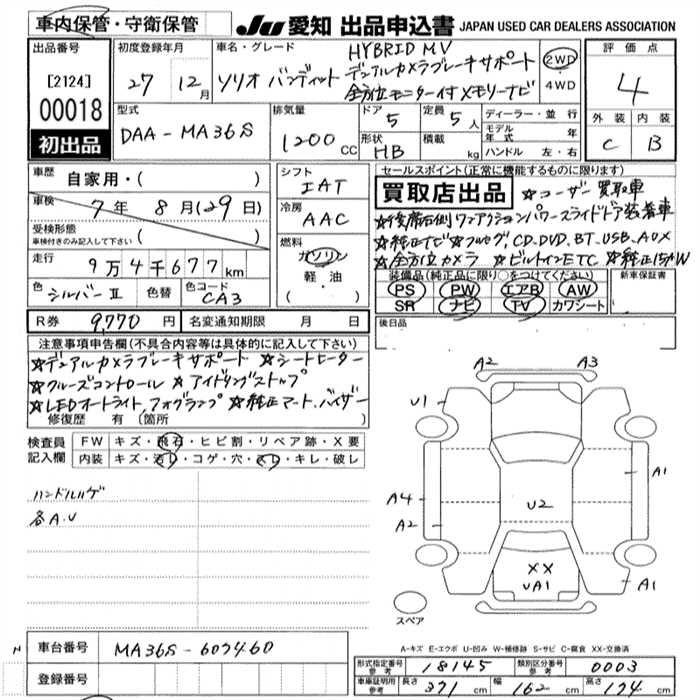 車内保管・守衛保管
JU 愛知 出品申込書 JAPAN USED CAR DEALERS ASSOCIATION
出品番号
[2124]
00018
初出品
初度登録年月
27 12月
車名・グレード
HYBRID MV
ソリオ バンディット デュアルカメラブレーキサポート
全方位モニター付メモリーナビ
2WD
4WD
評価点
4
外装 内装
C B
型式
DAA-MA36S
排気量
1200 CC
ドア 5
形状 HB
定員 5人
積載 kg
ディーラー・並行
モデル年式 年
ハンドル 左・右
車歴 自家用・( )
車検 7年 8月(29日)
受検形態
車検付きのみ記入して下さい( )
走行 9万4千677km
色 シルバーⅡ 色替 色コード CA3
シフト
IAT
冷房
AAC
燃料
ガソリン
軽油
( )
セールスポイント(正常に機能するものに限ります)
買取店出品 ☆ユーザー買取車
☆後席右側ワンアクションパワースライドドア装着車
☆純正ナビ☆フルセグ,CD,DVD,BT,USB,AUX
☆全方位カメラ ☆ビルトインETC ☆純正15AW
装備品(純正品に限り○をつけてください)
PS PW エアB AW
SR ナビ TV カワシート
新車保証書
後日品
R券 9,770円 名変通知期限 月 日
注意事項申告欄(不具合内容等は具体的に記入して下さい)
☆デュアルカメラブレーキサポート ☆シートヒーター
☆クルーズコントロール ☆アイドリングストップ
☆LEDオートライト,フォグランプ ☆純正マット,バイザー
修復歴 有 (箇所 )
検査員記入欄
FW キズ・飛石・ヒビ割・リペア跡・X要
内装 キズ・汚レ・コゲ・穴・スレ・キレ・破レ
ハンドルハゲ
各A.U
A2 A3
U1
A1
A4
U2
A2
XX
UA1
A1
スペア
A-キズ E-エクボ U-凹み W-補修跡 S-サビ C-腐食 XX-交換済
N
車台番号 MA36S-607460
登録番号
形式指定番号 参考 18145 類別区分番号 参考 0003
車庫証明用 参考 長さ 371 cm 幅 162 cm 高さ 174 cm